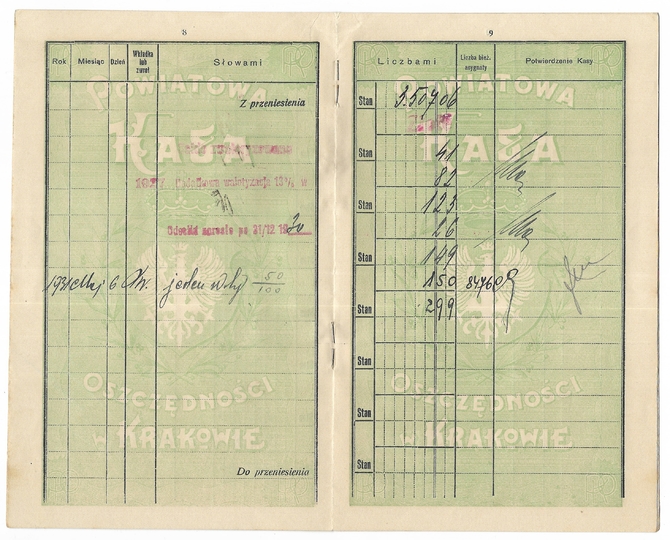 8
Rok Miesiąc Dzień Wkładka lub zwrot Słowami
Z przeniesienia
POWIATOWA
KASA
1927. Dodatkowa waloryzacja 13% w
Odsetki narosłe po 31/12 1930
1931 Maj 6 Wk. jeden zloty 50/100
OSZCZĘDNOŚCI
W KRAKOWIE
Do przeniesienia
9
Liczbami Liczba bież. asygnaty Potwierdzenie Kasy
POWIATOWA
KASA
Stan 3.507 06
Stan 41
82
Stan 123
26
Stan 149
150 84760
Stan 299
Stan
OSZCZĘDNOŚCI
Stan
W KRAKOWIE
Stan